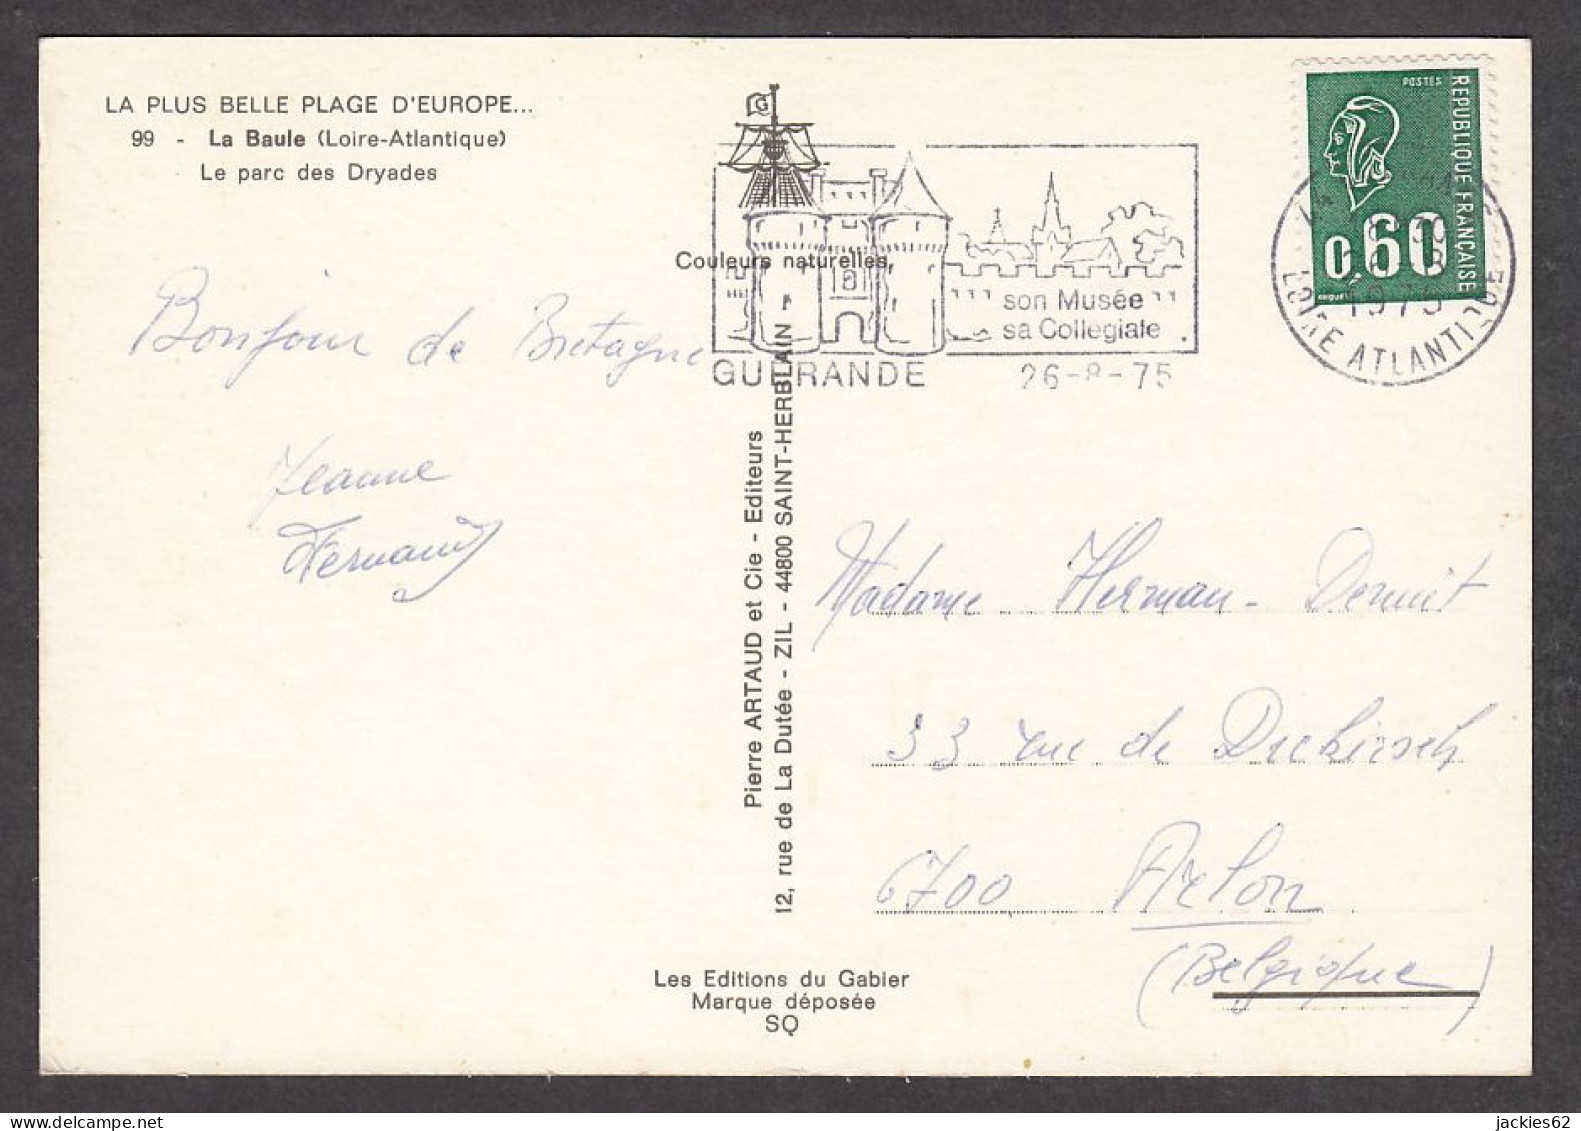 LA PLUS BELLE PLAGE D'EUROPE...
99 - La Baule (Loire-Atlantique)
Le parc des Dryades
POSTES
REPUBLIQUE FRANÇAISE
0,60
G
Couleurs naturelles
son Musée
sa Collegiale
GUERANDE
26-8-75
1975
LOIRE ATLANTIQUE
Bonjour de Bretagne
Jeanne
Fernand
Pierre ARTAUD et Cie - Editeurs
12, rue de La Dutée - ZIL - 44800 SAINT-HERBLAIN
Madame Herman-Dermit
33 rue de Diekirch
6700 Arlon
(Belgique)
Les Editions du Gabier
Marque déposée
SQ
jackies62